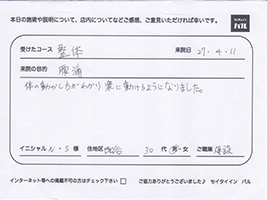 本日の施術や説明について、店内についてなどご感想、ご意見いただければ幸いです。
セイタイイン
パル
受けたコース 整体 来院日 27.4.11
来院の目的 腰痛
体の動かしかたがわかり楽に動けるようになりました。
イニシャル N・S 様 住地区 30 代 男・女 ご職業
インターネット等への掲載不可の方はチェック下さい □ ご協力ありがとうございました♪ セイタイイン パル